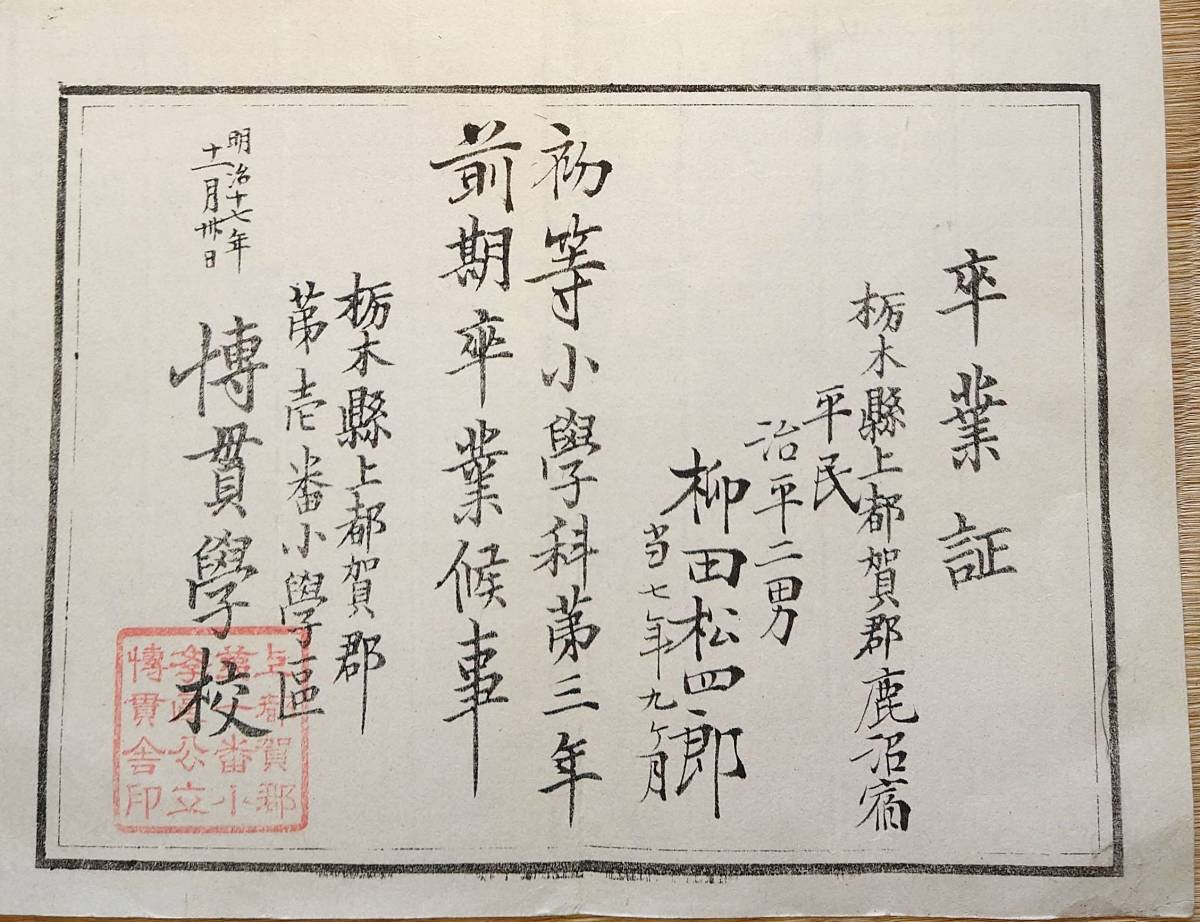 卒業証
栃木縣上都賀郡鹿沼宿
平民
治平二男
柳田松四郎
当七年九ヶ月
初等小學科第三年
前期卒業候事
栃木縣上都賀郡
第壱番小學區
博貫學校
明治十七年
十一月卅日
上都賀郡
第一番小
學區公立
博貫舎印